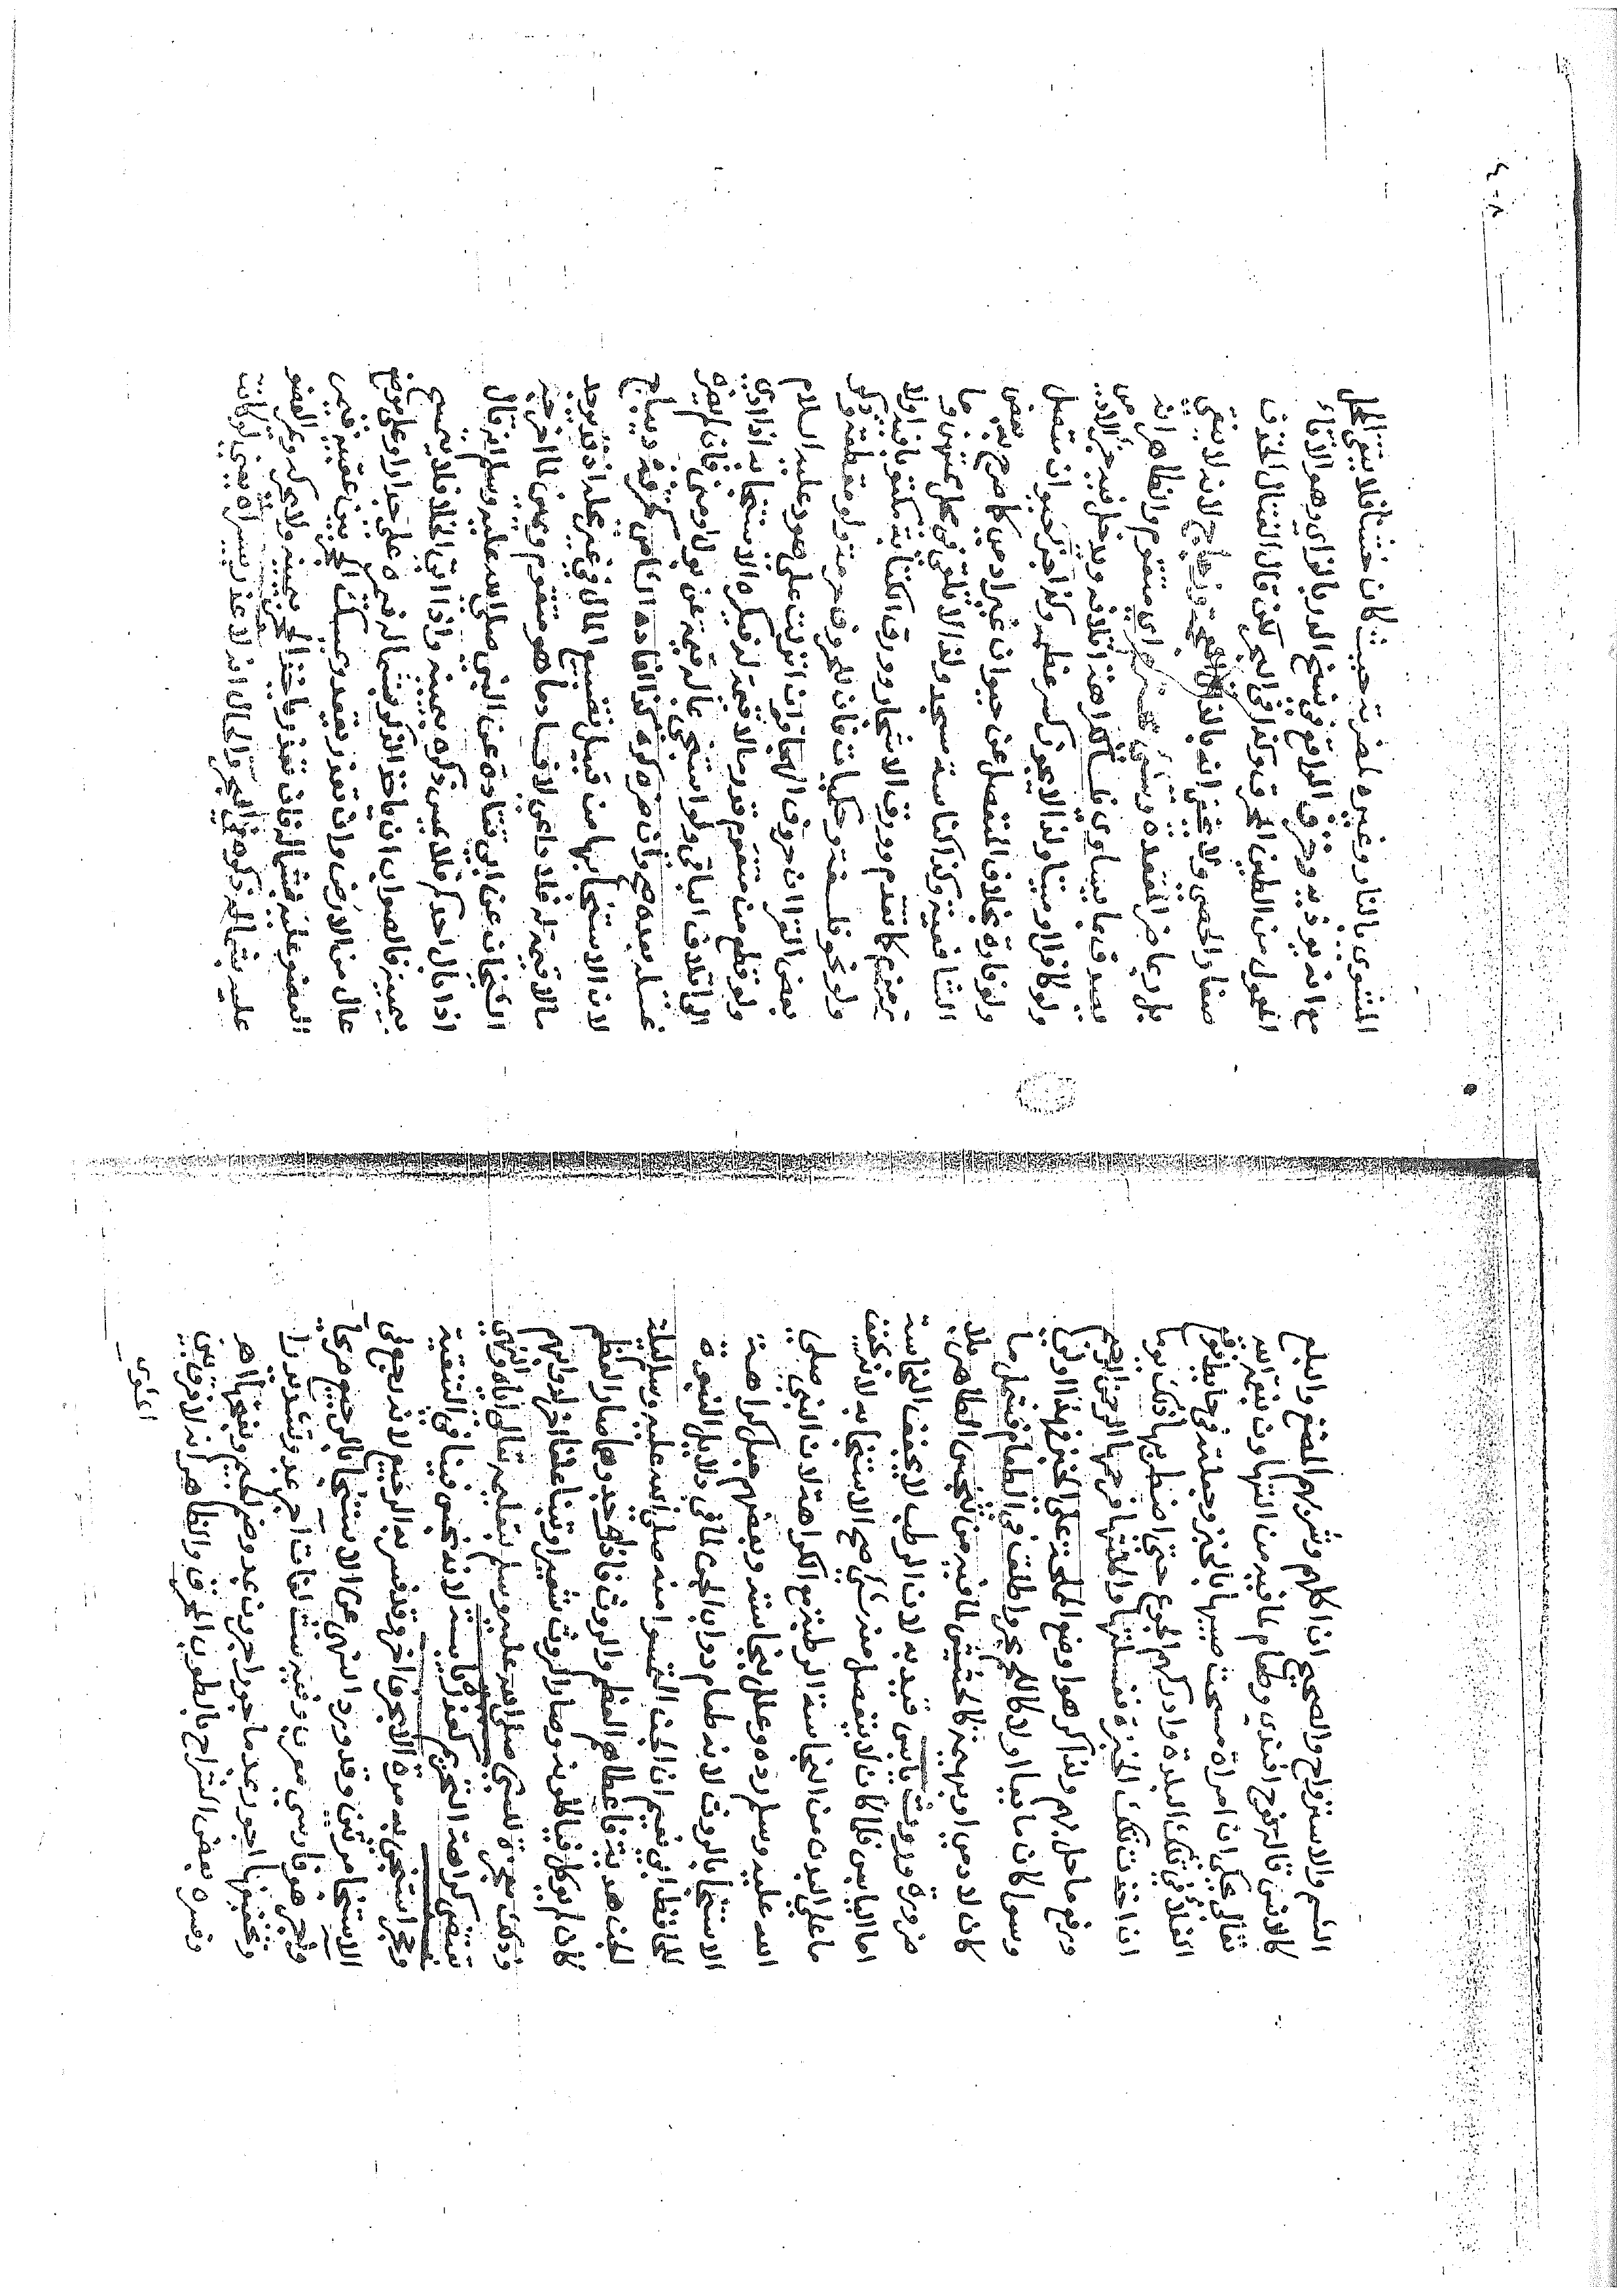 الشم والاستزواح والصحيح ان اكلهم وشربهم المضغ والبلع
كالانس قال نوح افندي وطعام لما فيه من التهاون بنعم الله
تعالى حكى ان امراة مسحت صبيها بالخبز وجعلته في حايط
الغلا في تلك البلدة وادركهم الجوع حتى اضطر بها ذلك يوما
ان اخذت تلك الخبزة فغسلتها واكلتها فرحمها الرحمن الرحيم
ورفع ما حل بهم ولذا كرهوا وضع المملحة على الخبز فهذا اولى
وسوا كان مايعا او لا كاللحم بحر واطلقه في الطعام فشمل ما
كان لادمي او بهيمة كالحشيش لما فيه من تنجيس الطاهر بلا
ضرورة وروث يابس قيد به لان الرطب لا يخفف النجاسة
اما اليابس فلما كان لا ينفصل منه شي صح الاستنجا به لانه يجفف
ما على البدن من النجاسة الرطبة مع الكراهة لان النبي صلى
الله عليه وسلم رده وعلل بنجاسته وبعضهم جعل كراهة
الاستنجا بالروث لانه طعام دواب الجن لما في دلايل النبوة
للحافظ ابي نعيم ان الجن التمسوا منه صلى الله عليه وسلم ليلة
الجن هدية فاعطاهم العظم والروث فاذا وجدوهما صار العظم
كان لم يوكل فياكلونه وصار الروث شعيرا وتبنا علفا لدوابهم
وذلك معجزة للنبي صلى الله عليه وسلم بتعليم تعالى اياه والنهي
يقتضي كراهة التحريم كعذرة يابسة لانه نجس فينافي التنقية
وحجر استنجي به مرة الا بحرف اخر وقد فسر به الرجيع لانه رجع على
الاستنجا مرتين وقد ورد النهي عن الاستنجا بالرجيع صريحا
واجر هو فارسي معرب وفيه ست لغات اجر بمد وتشديد را
وتخفيفها اجور بمد ماجور اجرون بمد وضم الجيم وفتحها اهـ
وفسره بعض الشراح بالطوب المحرق والظاهر انه لا فرق بين
المشوى
المشوى بالنار وغيره لضرره حيث كان خشنا فلا ينقي المحل
مع انه يوذيه وخزف الواقع في نسخ الدر بالزاي وهو الاناء
المعمول من الطين المحرق وكذا في البحر لكن قال القتال الخذف
صغار الحصى ولا يخفى انه بالذال المعجمة وزجاج لانه لا ينقي
بل ربما ضر المقعدة وشي محترم اي متقوم والظاهر انه
يصدق بما يساوي فلسا لكراهة اتلافه ويدخل فيه جزء الادمي
ولو كافرا او ميتا ولذا لا يجوز كسر عظمه وكذا جز حيوان متصل
ولو فارة بخلاف المنفصل عن حيوان غير ادمي كما صرح به بعض
الشافعية وكذا كناسة مسجد ولذا لا تلقى في محل ممتهن و ما
زمزم كما تقدم وورق الاشجار وورق الكتابة يكتو بافه ولا
ولو نحو فلسفة وحكايات فان للحروف حرمة ولو مقطعة وذكر
بعض القراء ان حروف الهجاء قران انزلت على هود عليه السلام
ولو قطع من متقوم قدر ما لا قيمة له فيكره الاستنجا به اذا ادى
الى اتلاف الباقي ولو استنجى بماله قيمة عن بول او مني فان لم يضره
غسله بعده صح وان ضره كره كذا افاده الحامي كخرقة ديباج
لان الاستنجا بها من قبيل تضييع المال في غير محله اذ قد يوجد
مالا قيمة له فلا داعي لافساد ما هو متقوم ويمين لما اخرجه
الشيخان عن ابي قتادة عن النبي صلى الله عليه وسلم انه قال
اذا بال احدكم فلا يمس ذكره بيمينه واذا اتى الخلا فلا يتمسح
بيمينه فالصواب ان ياخذ الذكر بشماله فيمره على جدار او على موضع
عال من الارض وان تعذر يقعد ويمسك الحجر بين عقبيه فيمر
العضو عليه بشماله فان تعذر ياخذ الحجر بيمينه ولا يحركه ويمر العضو
عليه بشماله ذكره في البحر والحال انه لا عذر بيسراه يعني لو كانت